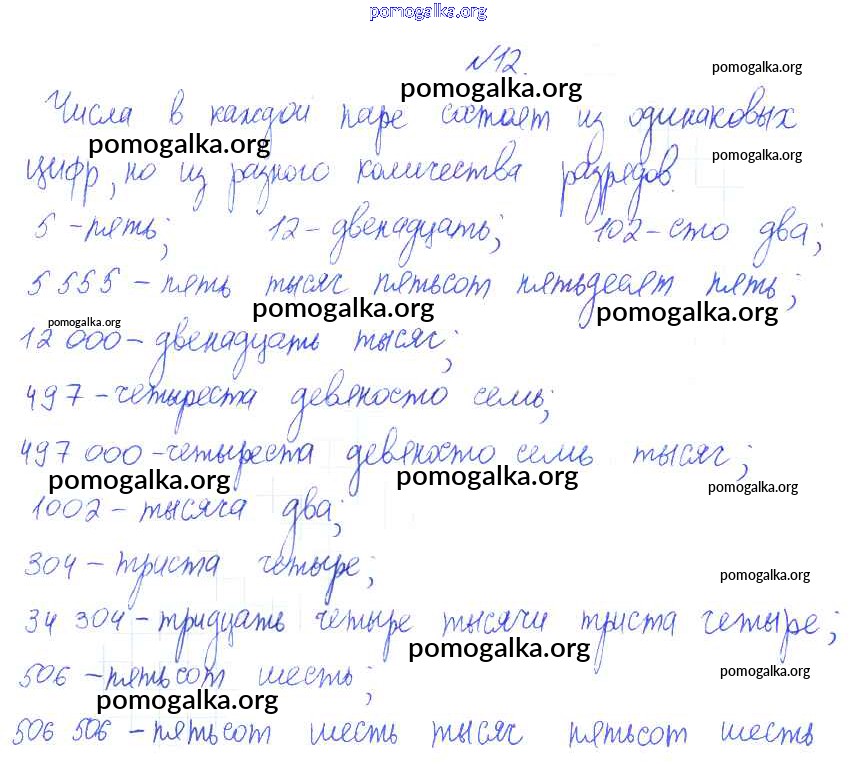 pomogalka.org
№12.
pomogalka.org
pomogalka.org
Числа в каждой паре состоят из одинаковых
pomogalka.org
pomogalka.org
цифр, но из разного количества разрядов.
5 - пять; 12 - двенадцать; 102 - сто два;
5 555 - пять тысяч пятьсот пятьдесят пять;
pomogalka.org
pomogalka.org
pomogalka.org
12 000 - двенадцать тысяч;
497 - четыреста девяносто семь;
497 000 - четыреста девяносто семь тысяч;
pomogalka.org
pomogalka.org
pomogalka.org
1002 - тысяча два;
304 - триста четыре;
pomogalka.org
34 304 - тридцать четыре тысячи триста четыре;
pomogalka.org
506 - пятьсот шесть;
pomogalka.org
pomogalka.org
506 506 - пятьсот шесть тысяч пятьсот шесть